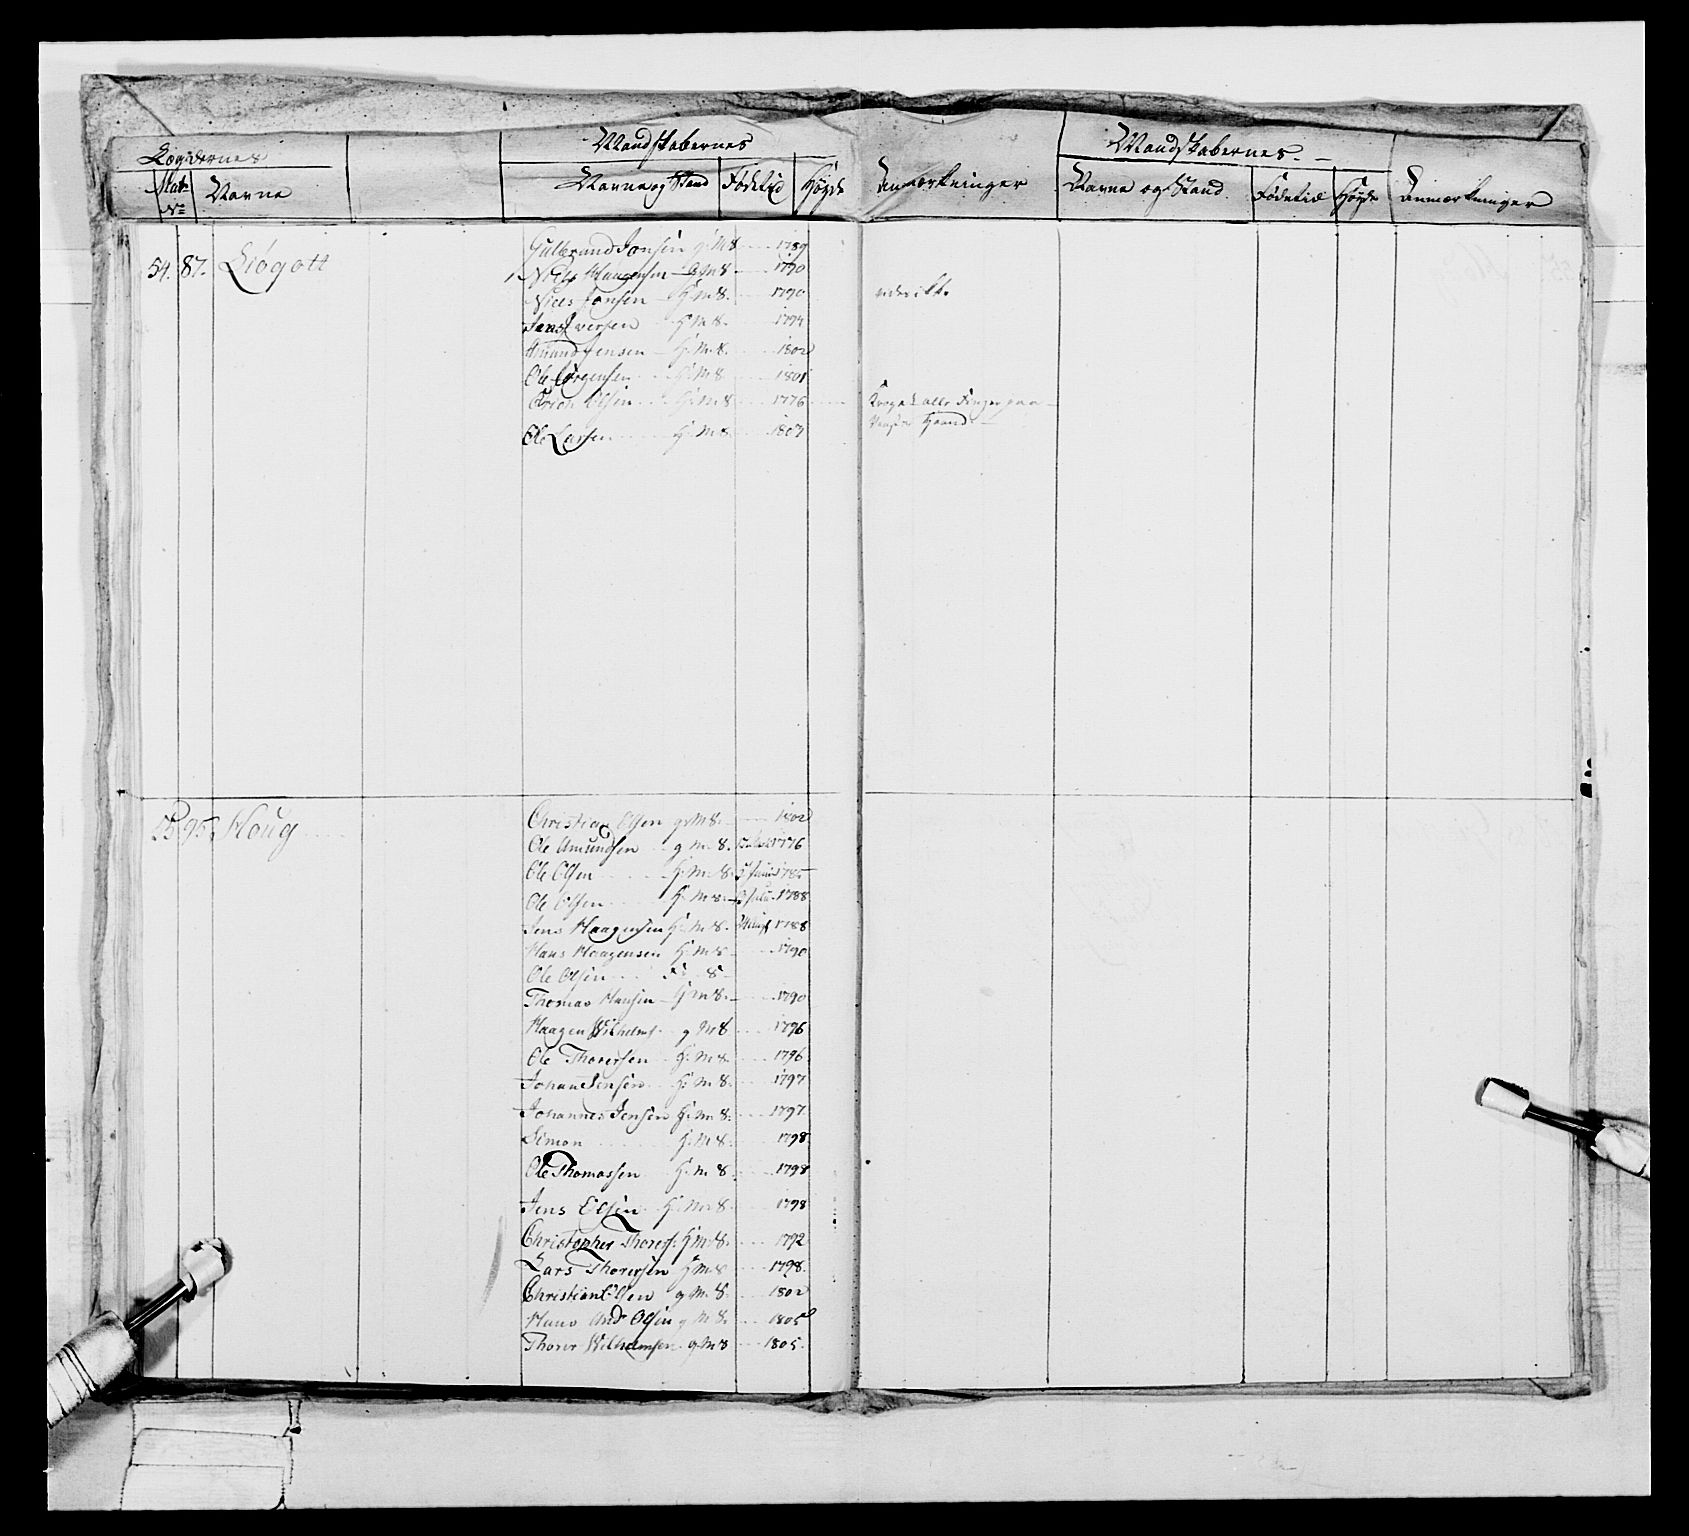 Lægdernes
Matr No
Navne
Mandskabernes
Navne og Stand
Fødetid
Høyde
Anmærkninger
Mandskabernes
Navne og Stand
Fødetid
Høyde
Anmærkninger
54. 87. Liøgott
Gulbrand Jonsen g: M 8 1789
Niels Haagensen G M 8 1790
Niels Jonsen G: M 8. 1790
Jens Iversen G: M 8. 1794
Amund Jensen G: M. 8. 1802
Ole Jørgensen G: M 8 1801
Erich Olsen G: M 8 1776
alle Finger paa
Ole Larsen G: M 8. 1807
Venstre Haand
55. 95. Houg
Christian Olsen g M 8. 1802
Ole Amundsen g M. 8. 1776
Ole Olsen G: M. 8. 1785
Ole Olsen G: M 8. 1788
Jens Haagensen G: M 8. 1788
Hans Haagensen G: M 8 1790
Ole Olsen 8
Thomas Hansen G M 8. 1790
Haagen Wilhelms. g M 8 1796
Ole Thoresen G: M 8. 1796
Johan Jensen G: M 8. 1797
Johannes Jensen G: M 8. 1797.
Simon G: M 8. 1798
Ole Thomassen G: M 8. 1798
Jens Olsen G: M 8. 1798
Christopher Thores: G M 8. 1792
Lars Thoresen G M 8 1798.
Christian Olsen g M. 8. 1802
Hans And: Olsen g M 8. 1805
Thorer Wilhelmsen. g M 8 1805.